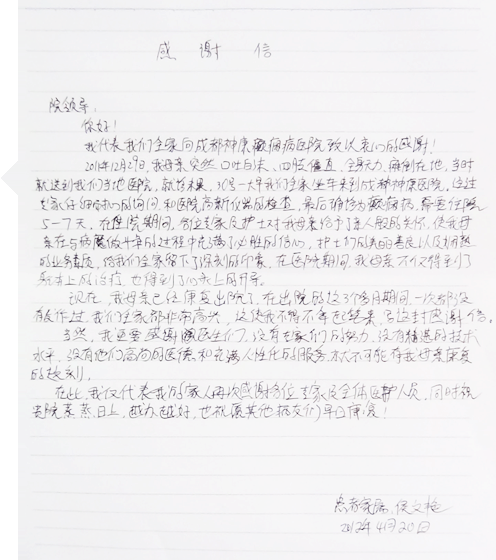 感谢信
院领导:
你好!
我代表我们全家向成都神康癫痫病医院致以衷心的感谢!
2011年12月29日,我母亲突然口吐白沫、四肢僵直,全身无力,瘫倒在地,当时
就送到我们当地医院,就诊未果,30号一大早我们全家坐车来到成都神康医院,通过
专家仔细耐心的询问和医院高新仪器的检查,最后确诊为癫痫病,需要住院
5-7天,在住院期间,各位专家及护士对我母亲给予了亲人般的关怀,使我母
亲在与病魔做斗争的过程中充满了必胜的信心,护士们的善良以及娴熟
的业务素质,给我们全家留下了深刻的印象,在医院期间,我母亲不仅得到了
上的治疗,也得到了心灵上的开导。
现在,我母亲已经康复出院了,在出院的这3个多月期间,一次都没
有发作过,我们全家都非常高兴,这使我不得不拿起笔来,写这封感谢信。
当然,我还要感谢医生们,没有专家们的努力,没有精湛的技术
水平,没有他们高尚的医德和充满人性化的服务,不可能有我母亲康复
的技利。
在此,我仅代表我的家人再次感谢各位专家及全体医护人员,同时祝
贵院蒸蒸日上,越办越好,也祝愿其他病友们早日康复!
患者家属:侯文艳
2012年4月20日